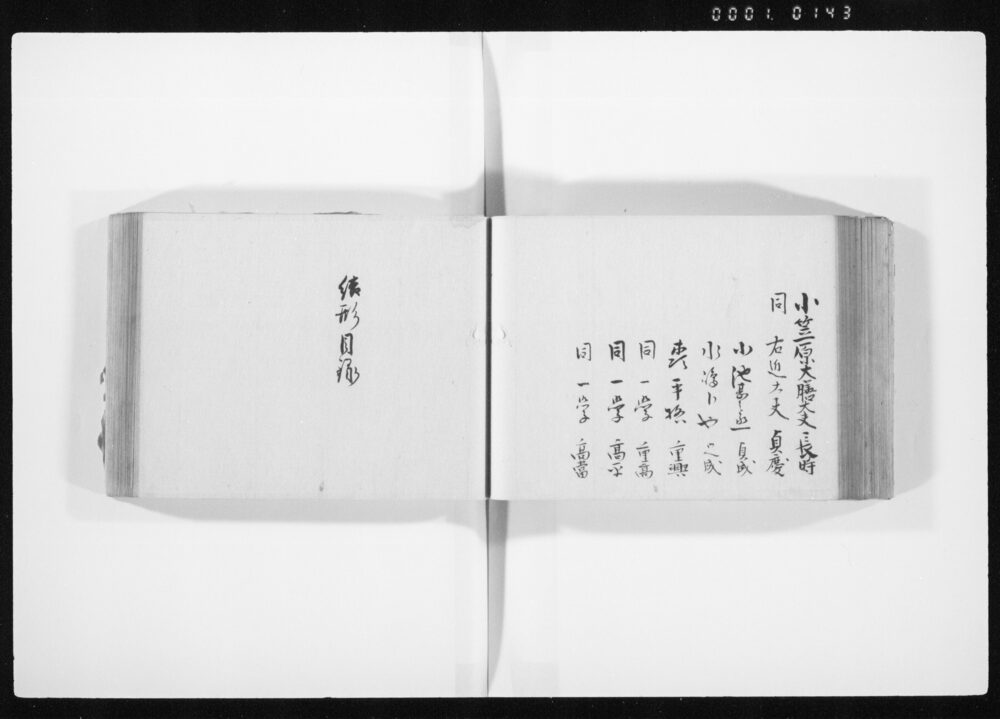 0001 0143
小笠原大膳大夫長時
同 右近大夫 貞慶
小池甚之丞 貞成
水嶋卜也 之成
平格 重興
同 一学 重高
同 一学 高平
同 一学 高當
結形目録